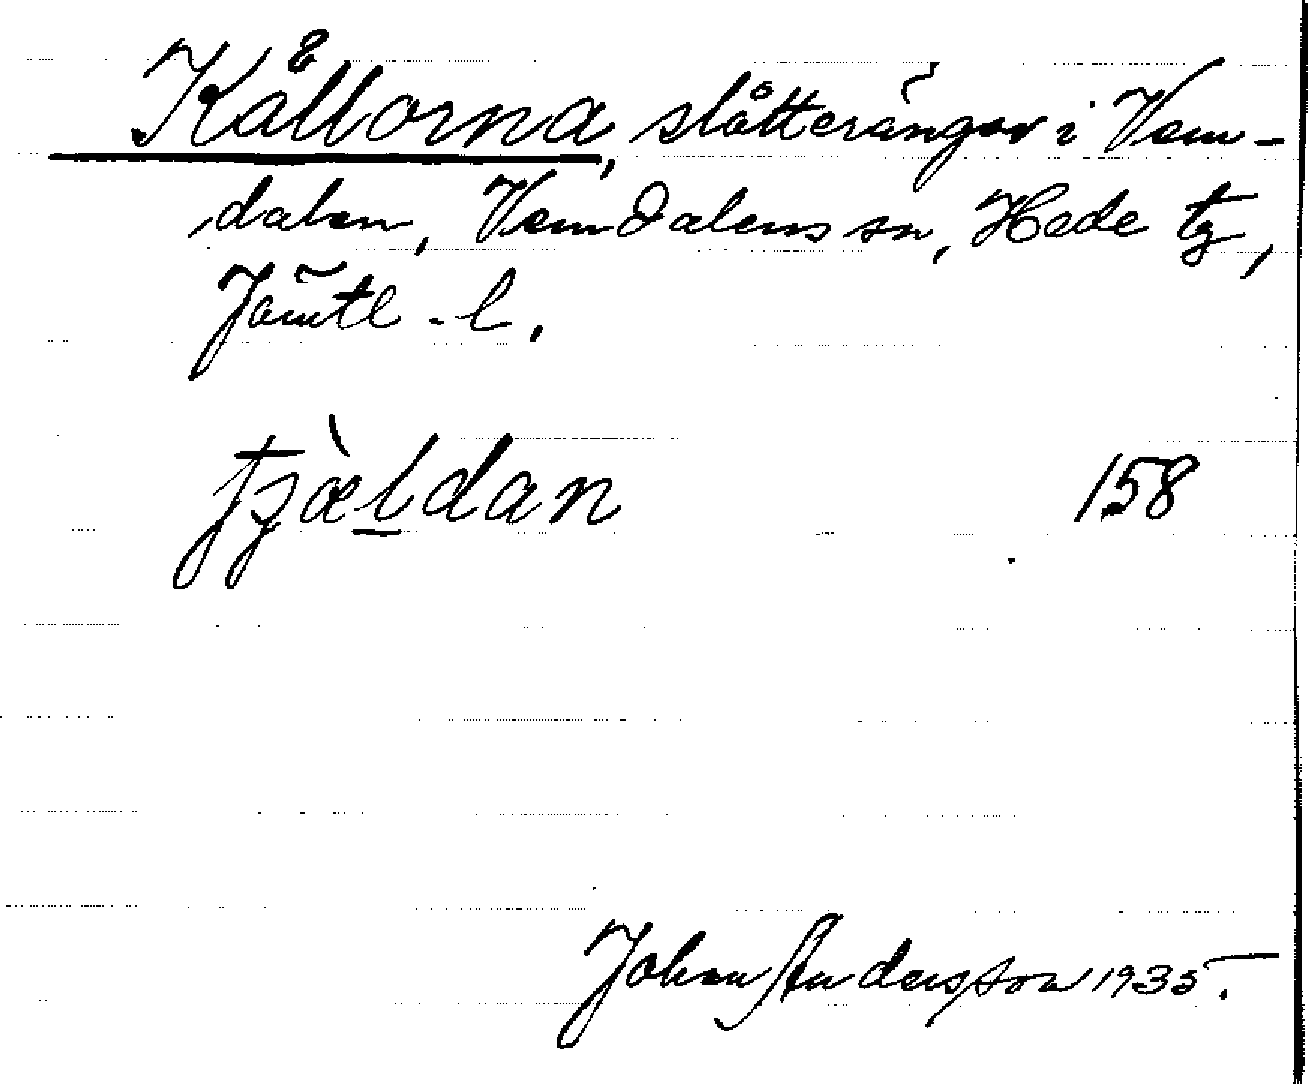 Kållorna, slåtterängar i Vem-
dalen, Vemdalens sn, Hede tg,
Jämtl. l.
tʃæ̀ldan 158
Johan Andersson 1935.